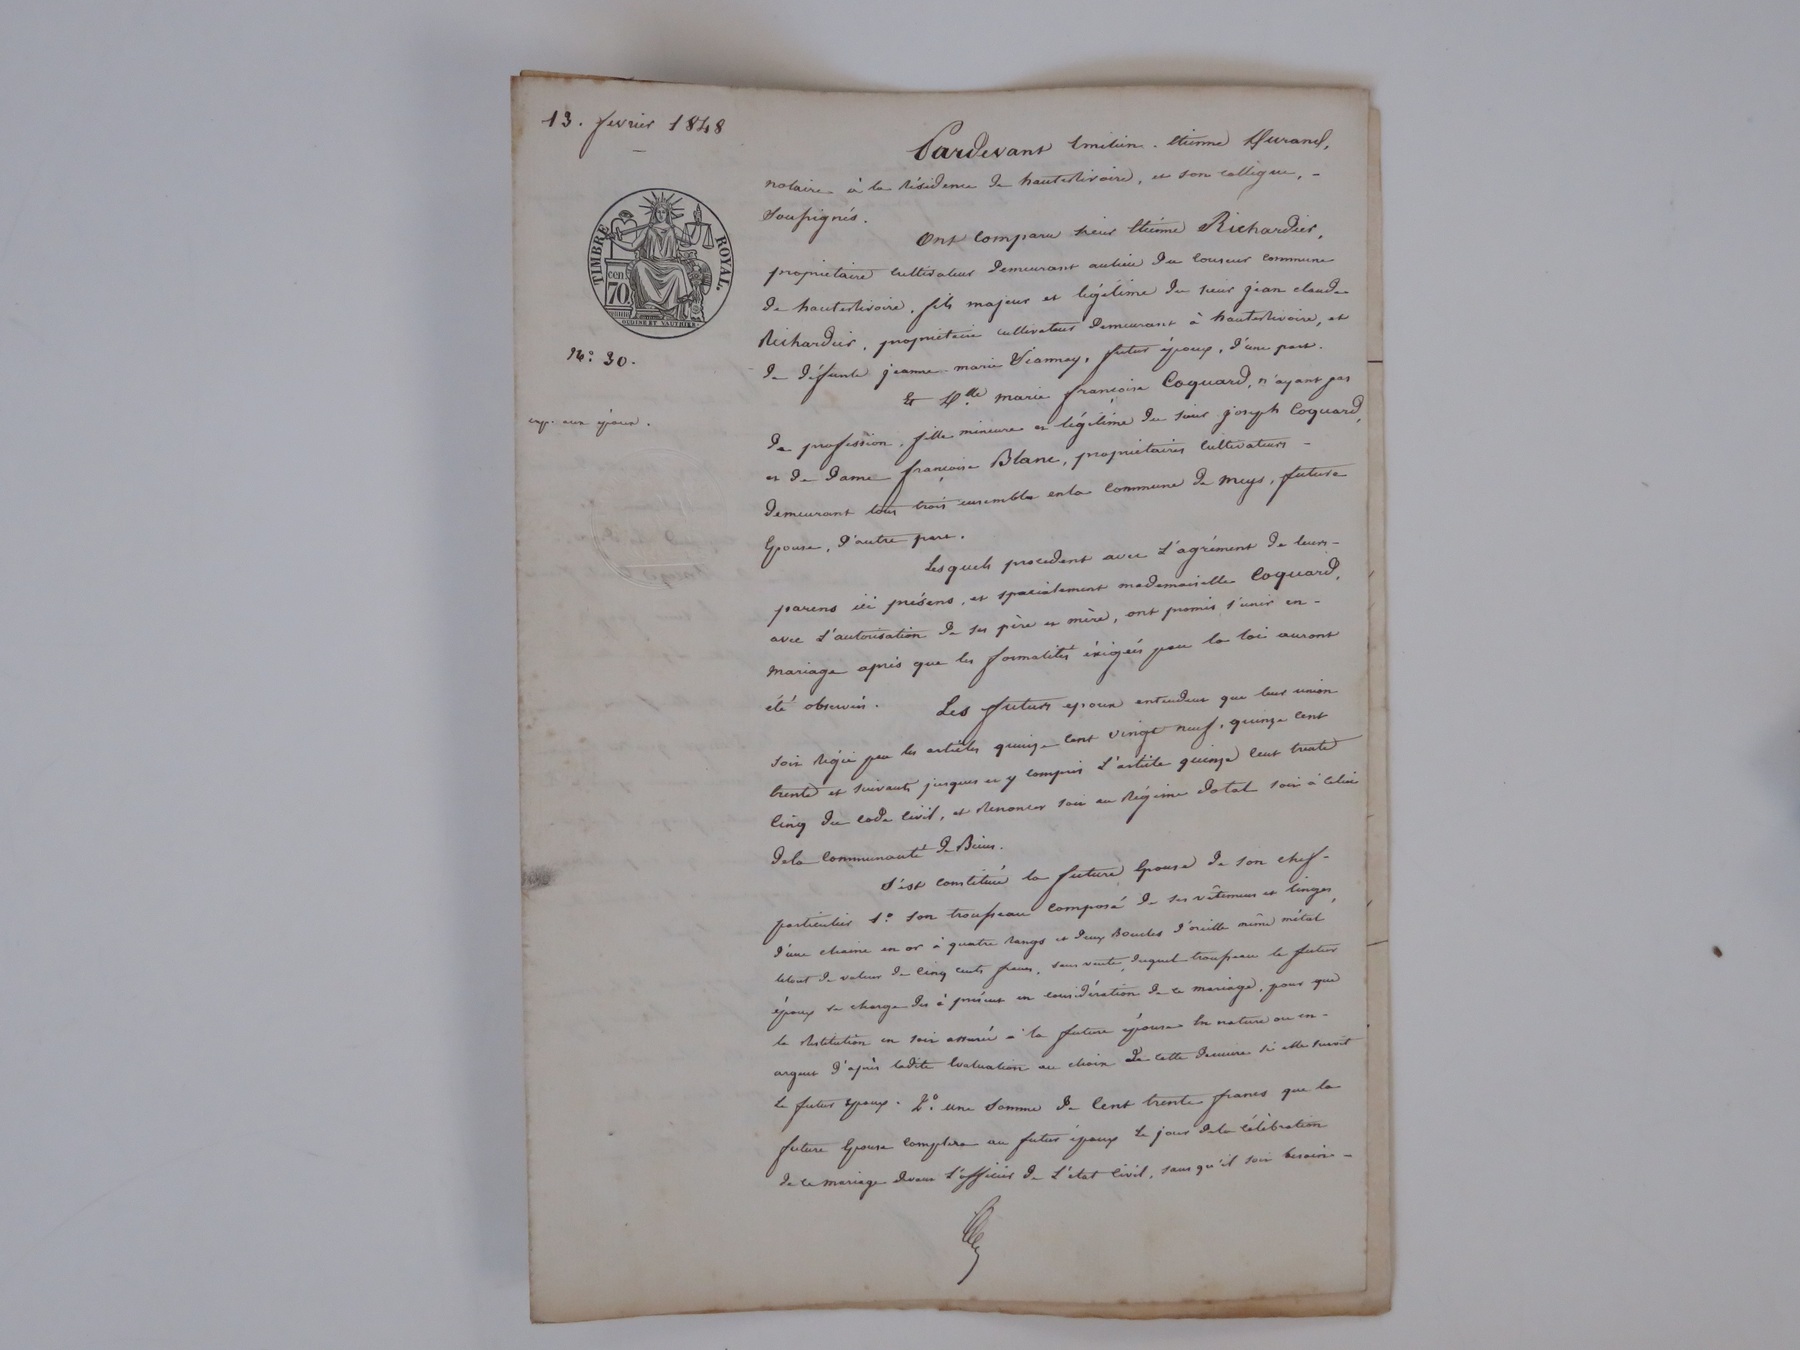 13. fevrier 1848
TIMBRE ROYAL.
cen
70
N.º 30.
exp. aux époux.
Pardevant Emilien-Etienne Durand,
notaire à la résidence de hauterivoire, et son collègue, -
Soussignés.
Ont comparu sieur Etienne Richardier,
propriétaire cultivateur demeurant au lieu du commune
de hauterivoire, fils majeur et légitime du sieur jean claude
Richardier, propriétaire cultivateur demeurant à hauterivoire, et
de défunte jeanne-marie Vianney, futur époux, d'une part.
Et D.lle marie françoise Coquard, n'ayant pas
de profession, fille mineure et légitime du sieur joseph Coquard,
et de dame françoise Blanc, propriétaires cultivateurs -
demeurant tous trois ensemble en la commune de meys, future
Epouse, d'autre part.
Lesquels procedent avec l'agrément de leurs -
parens ici présens, et spécialement mademoiselle Coquard,
avec l'autorisation de ses père et mère, ont promis s'unir en -
mariage après que les formalités éxigées par la loi auront
été observées. Les futurs epoux entendent que leur union
soit régie par les articles quinze cent vingt neuf, quinze cent
trente et suivants jusques et y compris l'article quinze cent trente
cinq du code civil, et renoncer soit au régime dotal soit à celui
de la communauté de Biens.
S'est constitué la future Epouse de son chef -
particulier 1.º son trousseau composé de ses vêtemens et linges,
d'une chaine en or à quatre rangs et deux Boucles d'oreille même métal
letout de valeur de cinq cents francs, sans vente, duquel trousseau le futur
époux se charge dès à présent en considération de ce mariage, pour que
la restitution en soit assurée à la future épouse En nature ou en -
argent d'après ladite Evaluation au choix de cette dernière si elle survit
le futur Epoux. 2.º une somme de Cent trente francs que la
future Epouse comptera au futur époux le jour dela célébration
de ce mariage devant l'officier de l'état civil, sans qu'il soit besoin -